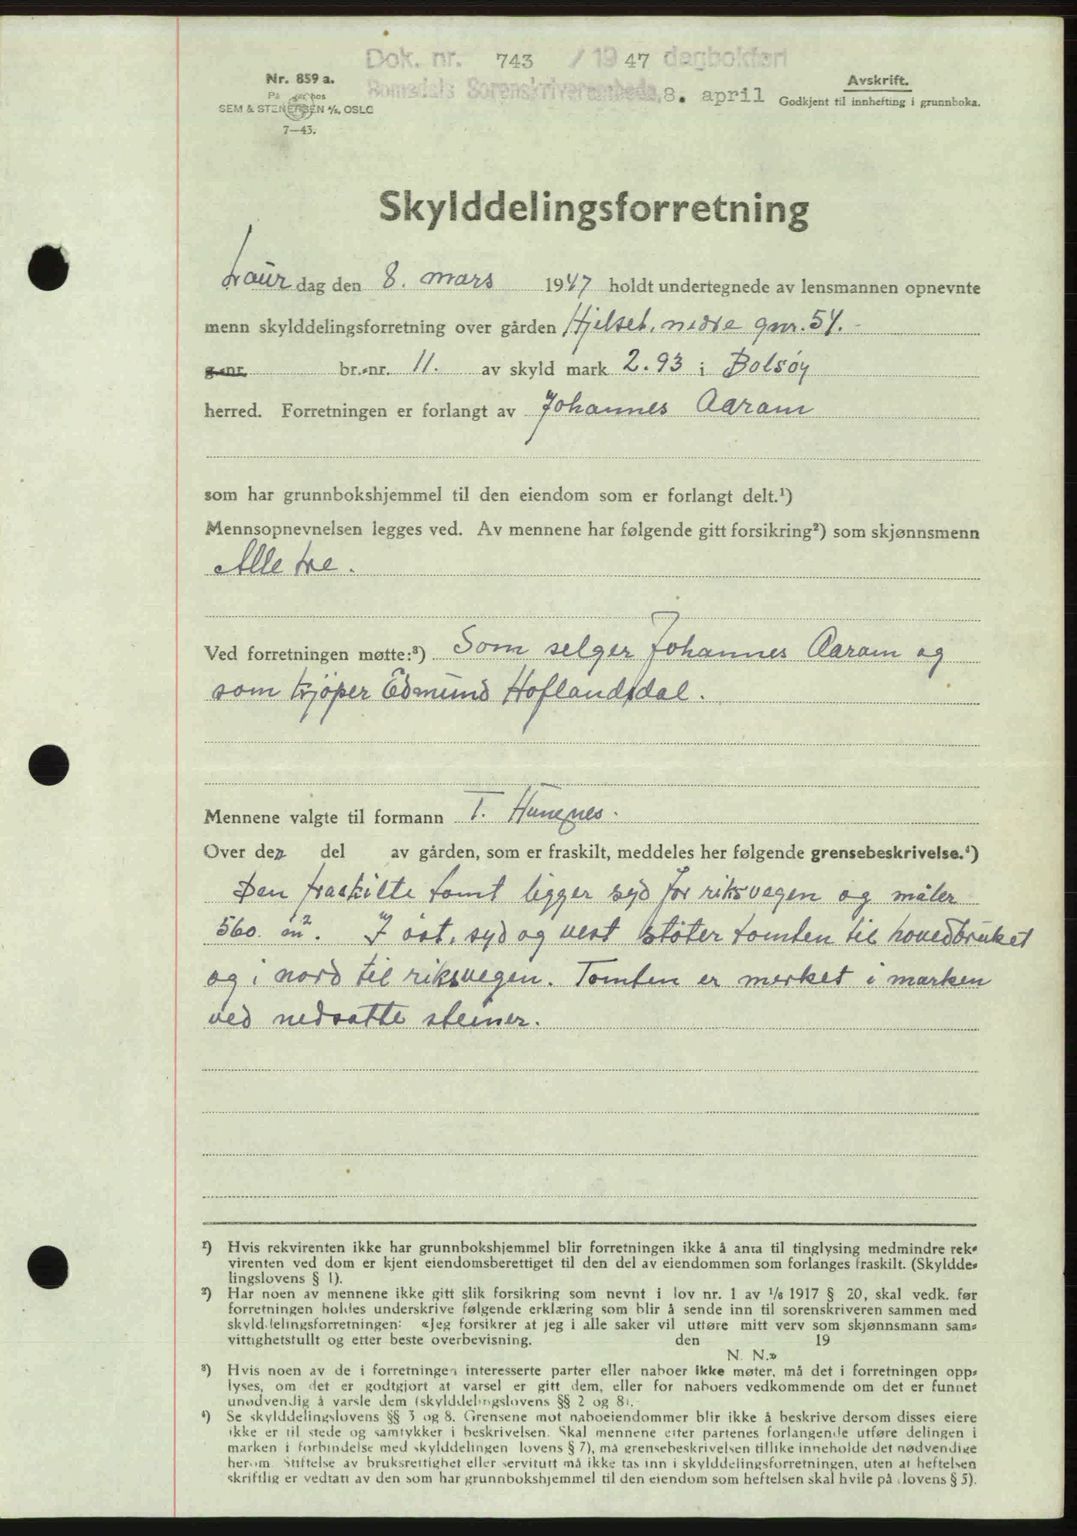 Dok. nr. 743 / 19 47 dagbokført
Romsdals Sorenskriverembede, 8. april
Nr. 859 a.
På lager hos
SEM & STENERSEN A/S, OSLO
7—43.
Avskrift.
Godkjent til innhefting i grunnboka.
Skylddelingsforretning
Laur dag den 8. mars 1947 holdt undertegnede av lensmannen opnevnte
menn skylddelingsforretning over gården Hjelset, nedre gnr. 54. -
g.-nr. br.-nr. 11. av skyld mark 2.93 i Bolsøy
herred. Forretningen er forlangt av Johannes Aaram
som har grunnbokshjemmel til den eiendom som er forlangt delt.¹)
Mennsopnevnelsen legges ved. Av mennene har følgende gitt forsikring²) som skjønnsmenn
Alle tre.
Ved forretningen møtte:³) Som selger Johannes Aaram og
som kjøper Edmund Hoflandsdal.
Mennene valgte til formann T. Hungnes.
Over den del av gården, som er fraskilt, meddeles her følgende grensebeskrivelse.⁴)
Den fraskilte tomt ligger syd for riksvegen og måler
560 m². I øst, syd og vest støter tomten til hovedbruket
og i nord til riksvegen. Tomten er merket i marken
ved nedsatte steiner.
¹) Hvis rekvirenten ikke har grunnbokshjemmel blir forretningen ikke å anta til tinglysing medmindre rek-
virenten ved dom er kjent eiendomsberettiget til den del av eiendommen som forlanges fraskilt. (Skyldde-
lingslovens § 1).
²) Har noen av mennene ikke gitt slik forsikring som nevnt i lov nr. 1 av 1/6 1917 § 20, skal vedk. før
forretningen holdes underskrive følgende erklæring som blir å sende inn til sorenskriveren sammen med
skylddelingsforretningen: «Jeg forsikrer at jeg i alle saker vil utføre mitt verv som skjønnsmann sam-
vittighetsfullt og etter beste overbevisning. den 19
N. N.»
³) Hvis noen av de i forretningen interesserte parter eller naboer ikke møter, må det i forretningen opp-
lyses, om det er godtgjort at varsel er gitt dem, eller for naboers vedkommende om det er funnet
unødvendig å varsle dem (skylddelingslovens §§ 2 og 8).
⁴) Se skylddelingslovens §§ 3 og 8. Grensene mot naboeiendommer blir ikke å beskrive dersom disses eiere
ikke er til stede og samtykker i beskrivelsen. Skal mennene etter partenes forlangende utføre delingen i
marken i forbindelse med skylddelingen lovens § 7), må grensebeskrivelsen tillike inneholde det nødvendige
herom. Stiftelse av bruksrettighet eller servitutt må ikke tas inn i skylddelingsforretningen, uten at heftelsen
skriftlig er vedtatt av den som har grunnbokshjemmel til den eiendom som heftelsen skal hvile på lovens § 5).